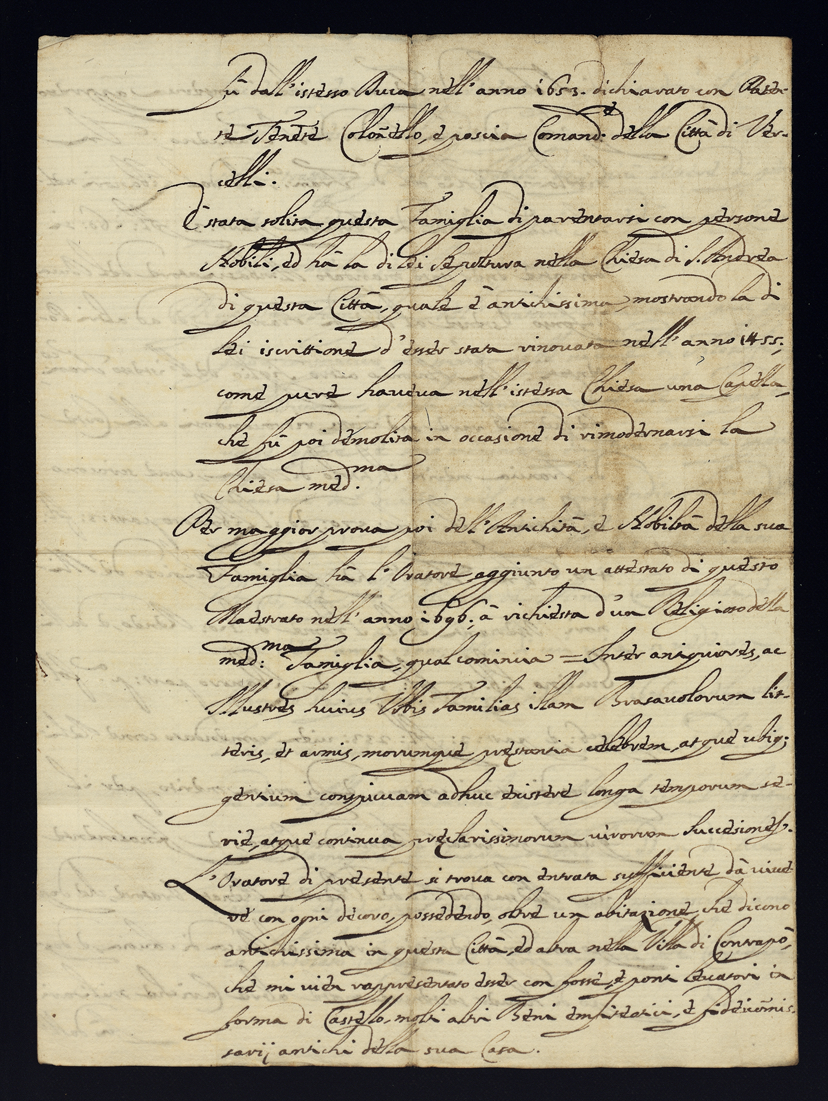 fù dall'istesso Duca nell'anno 1653. dichiarato con Paten-
te Tenẽte Coloñello, e poscia Comand.e della Città di Ver-
celli.
È stata solita questa Famiglia di parentarsi con persone
Nobili, ed hà la di lei sepoltura nella Chiesa di S. Andrea
di questa Città, quale è antichissima, mostrando la di
lei iscrittione d'esser stata rinovata nell'anno 1455;
come pure haveva nell'istessa Chiesa una Capella,
che fù poi demolita in occasione di rimodernarsi la
Chiesa med.ma
Per maggior prova poi dell'Antichità, e Nobiltà della sua
Famiglia hà l'Oratore aggiunto un attestato di questo
Maestrato nell'anno 1696: à richiesta d'un Religioso della
med:ma Famiglia, qual comincia = Inter antiquiores, ac
Illustres huius Urbis Familias illam Brasavolorum lit-
teris, et armis, morumque prestantia celebrem, atque ubiq;
gentium conspicuam adhuc existere longa temporum se-
rie, atque continua preclarissimorum virorum successione
L'Oratore di presente si trova con entrata sufficiente dà vive-
re con ogni decoro, possedendo, oltre un abitazione, che dicono
antichissima in questa Città, ed altra nella Villa di Contrapò,
che mi vien rappresentato esser con fosse, e ponti levatori in
forma di Castello, molti altri Beni emfiteotici, e fideicõmis-
sarij antichi della sua Casa.